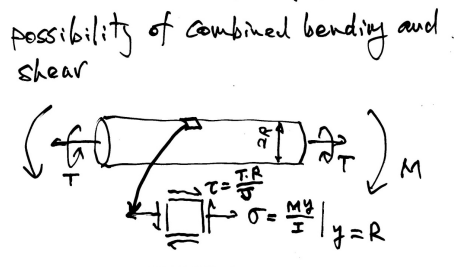 possibility of combined bending and
shear
T
2R
T
M
τ = T.R / J
σ = My / I | y = R